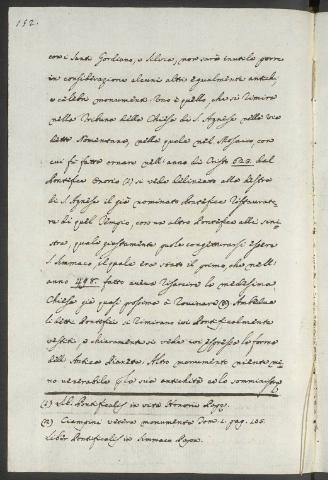 152.
con i Santi Gordiano, e Silvia, non sarà inutile porre
in considerazione alcuni altri egualmente antichi,
e celebri monumenti. Uno è quello, che si rimira
nella Tribuna della Chiesa di S. Agnese nella via
detta Nomentana, nella quale nel Mosaico con
cui fu fatto ornare nell'anno di Cristo 623. dal
Pontefice Onorio (1) si vede delineato alla destra
di S. Agnese il già nominato Pontefice Ristaurato
re di quel Tempio, con un altro Pontefice alla sini
stra, quale giustamente puole congetturarsi essere
S. Simmaco, il quale era stato il primo, che nell'
anno 498. fatto aveva risarcire la medesima
Chiesa già quasi prossima a rovinare (2). Ambedue
li detti Pontefici si rimirano ivi Pontificalmente
vestiti, e chiaramente si vede ivi espressa la forma
dell'Antica Pianeta. Altro monumento niente me
no venerabile per sua antichità ce lo somministra
(1) Lib. Pontificalis in vita Honorii Papæ.
(2) Ciampini vetera monumenta Tom. 2. pag. 105.
Liber Pontificalis in Simmaco Papa.